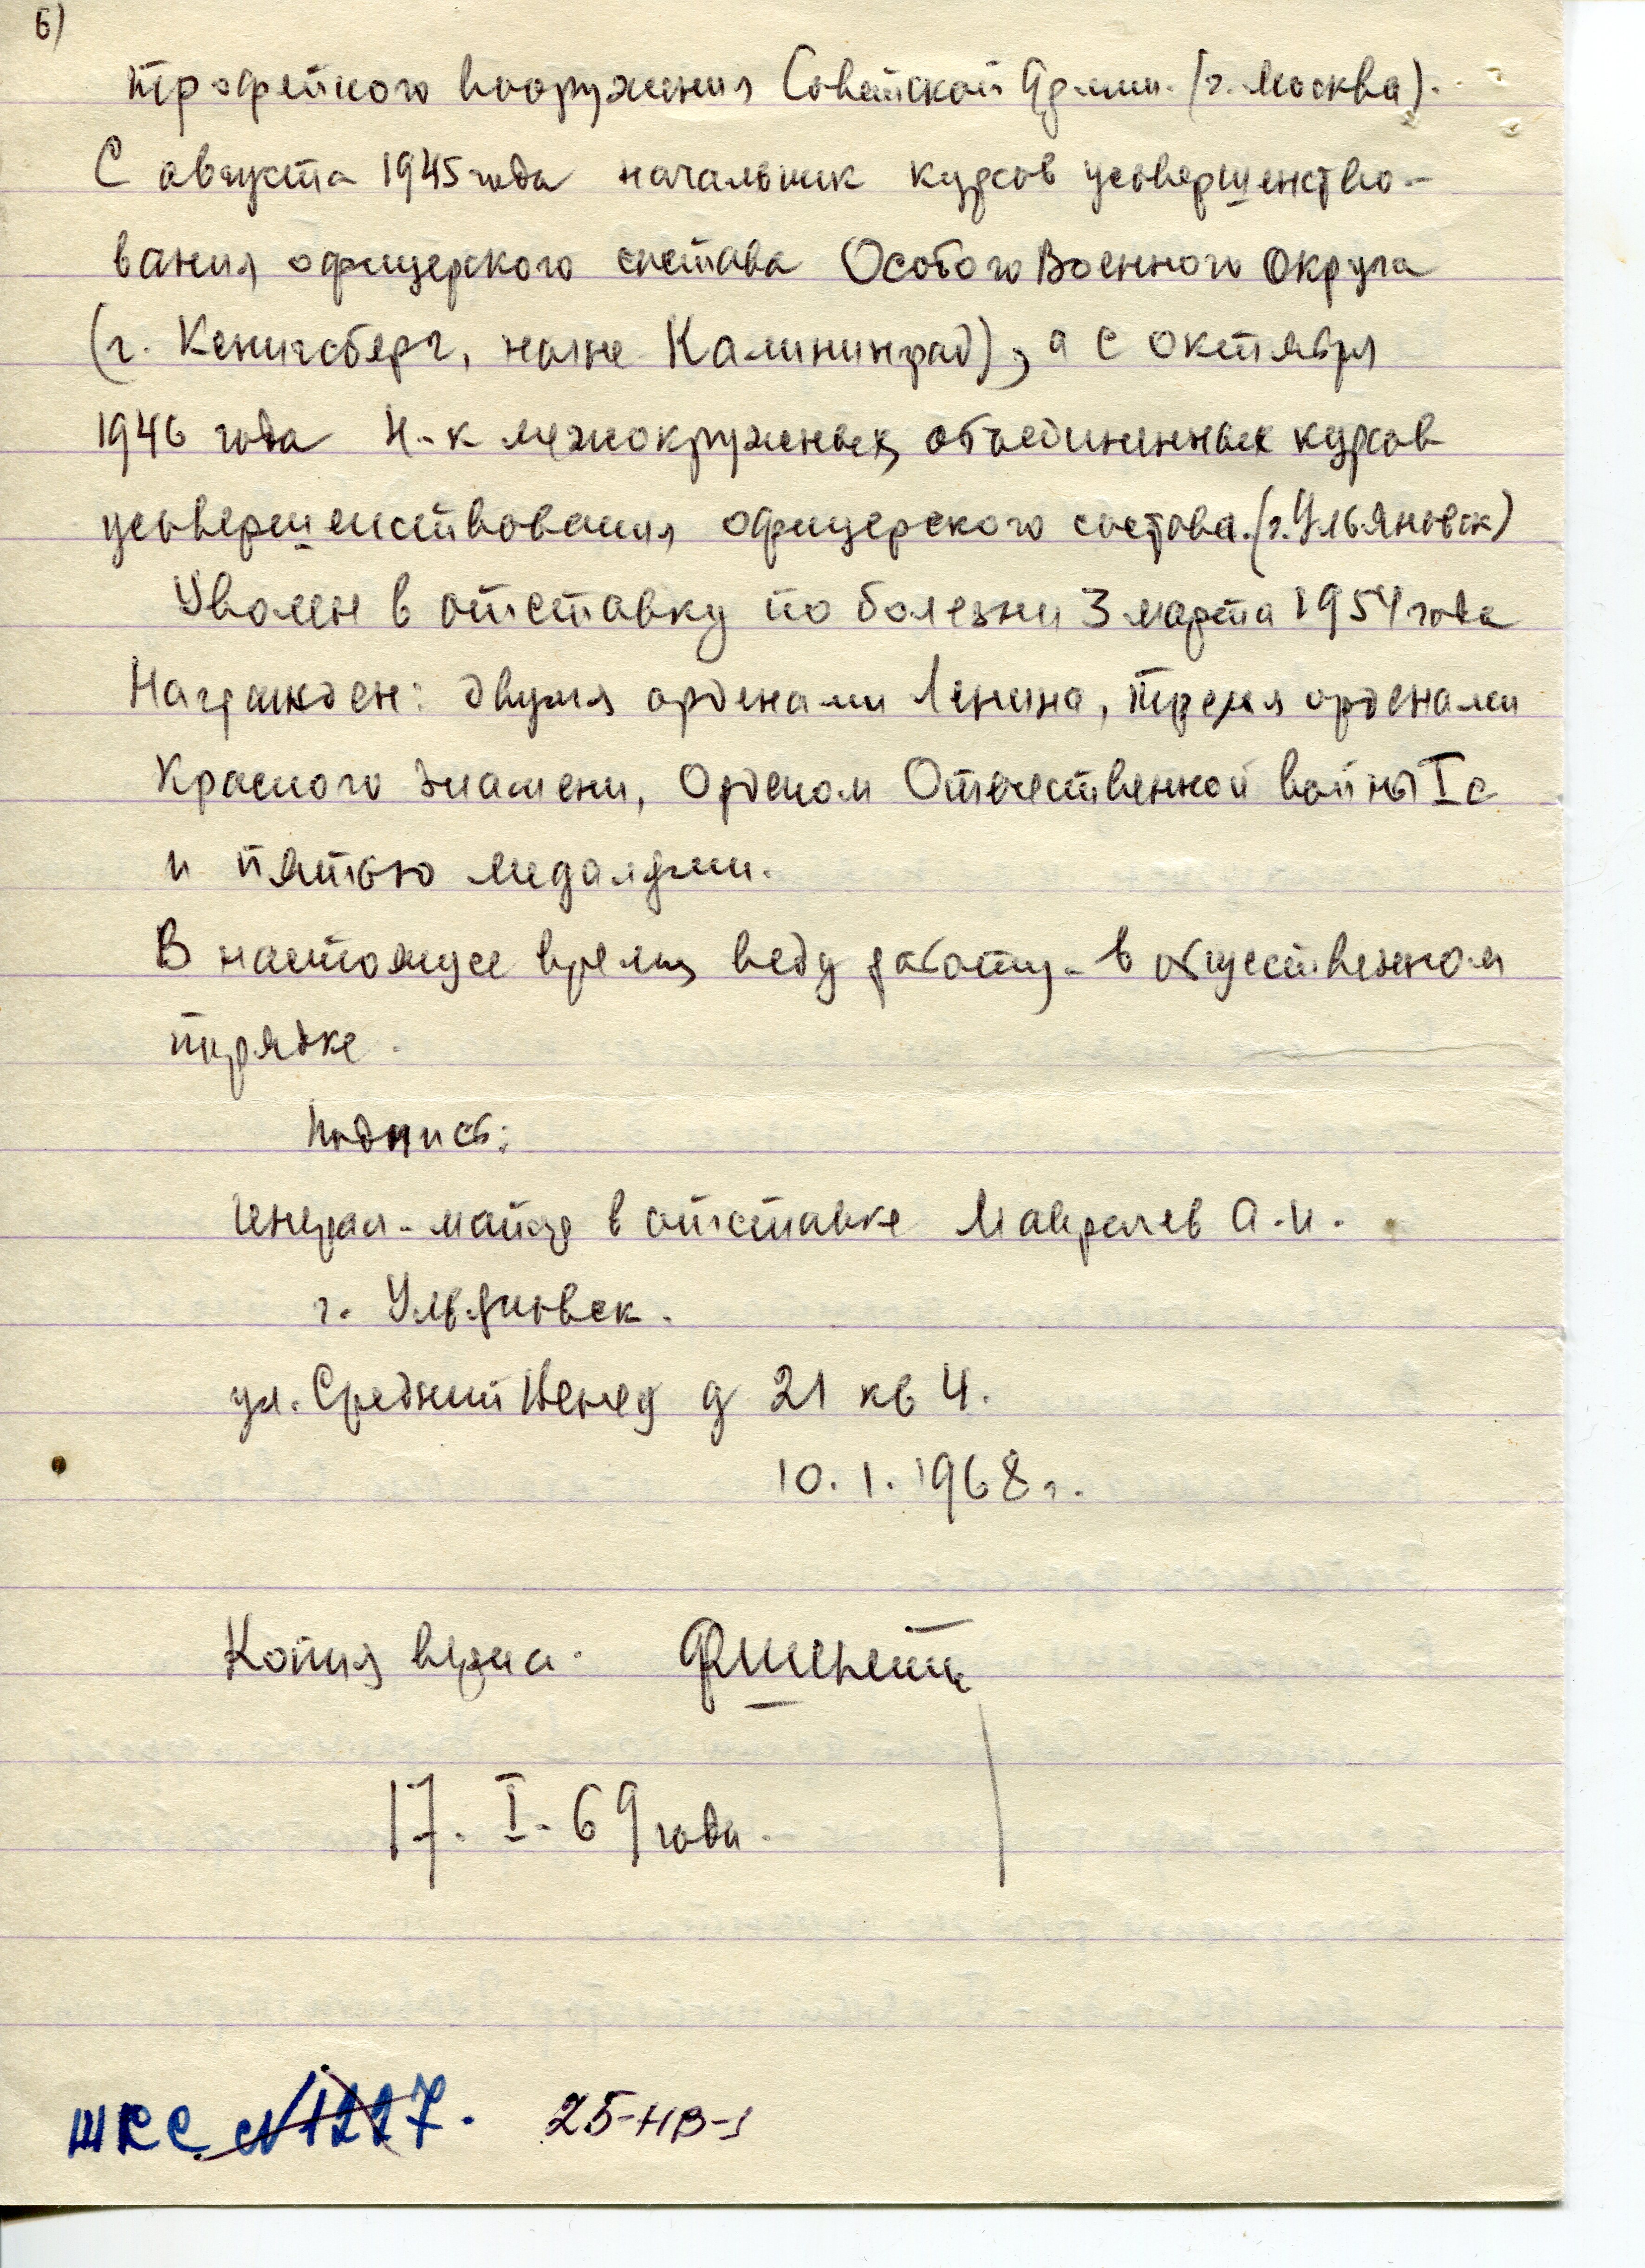 6)
трофейного вооружения Советской Армии. (г. Москва).
С августа 1945 года начальник курсов усовершенство-
вания офицерского состава Особого Военного Округа
(г. Кенигсберг, ныне Калининград), а с октября
1946 года Н-к межокружных объединенных курсов
усовершенствования офицерского состава. (г. Ульяновск)
Уволен в отставку по болезни 3 марта 1954 года
Награжден: двумя орденами Ленина, тремя орденами
Красного Знамени, Орденом Отечественной войны I с
и пятью медалями.
В настоящее время веду работу в общественном
порядке.
Подпись:
Генерал-майор в отставке А.И.
г. Ульяновск.
ул. Средний Венец д 21 кв 4.
10.1.1968 г.
Копия верна.
17. I. 69 года.
ШКС №1227. 25-НВ-1